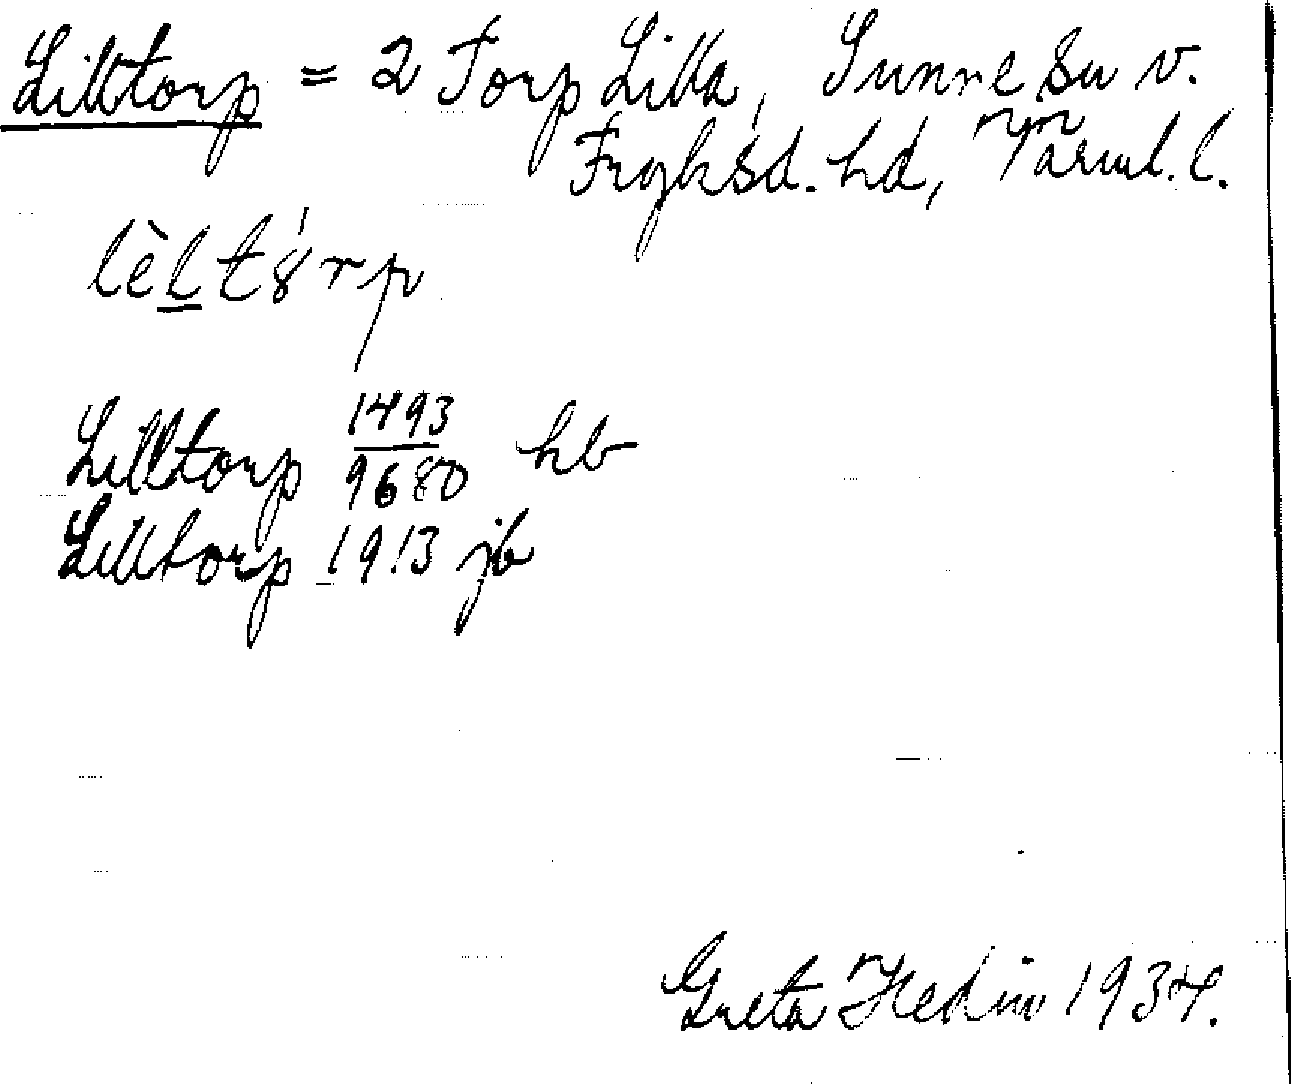 Lilltorp = 2 Torp Lilla, Sunne sn v.
Fryksd. hd, Värml. l.
lèltȣ́rp
Lilltorp 1493/9680 hb
Lilltorp 1913 jb
Greta Hedin 1934.